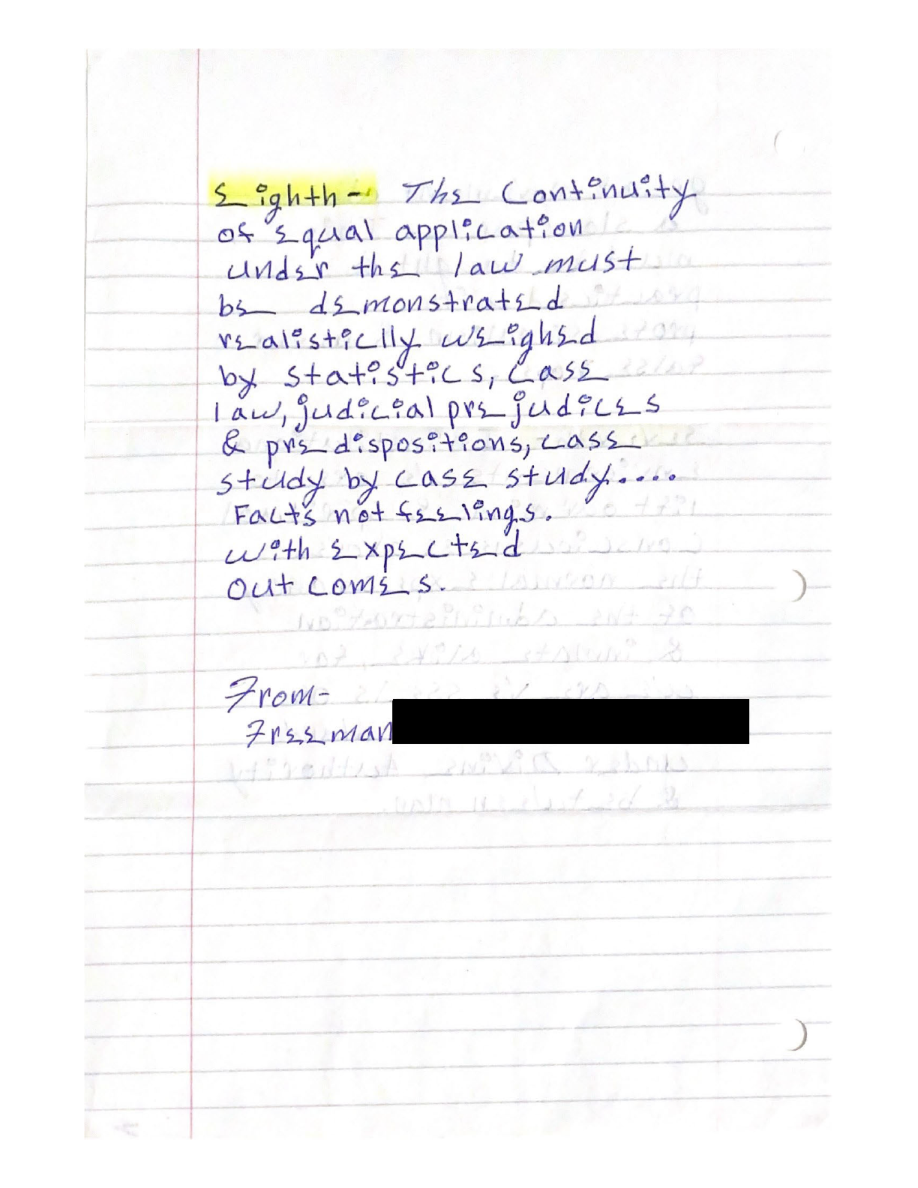 Eighth - The Continuity
of Equal application
under the law must
be demonstrated
realisticlly weighed
by statistics, Case
law, judicial prejudices
& predispositions, case
study by case study....
Facts not feelings.
with expected
outcomes.
From-
Freeman